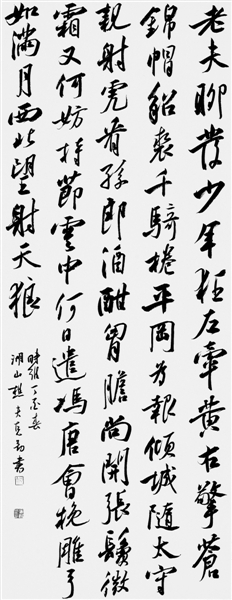 老夫聊發少年狂左牽黃右擎蒼
錦帽貂裘千騎捲平岡為報傾城隨太守
親射虎看孫郎酒酣胸膽尚開張鬢微
霜又何妨持節雲中何日遣馮唐會挽雕弓
如滿月西北望射天狼
時維丁酉春
湖山趙書